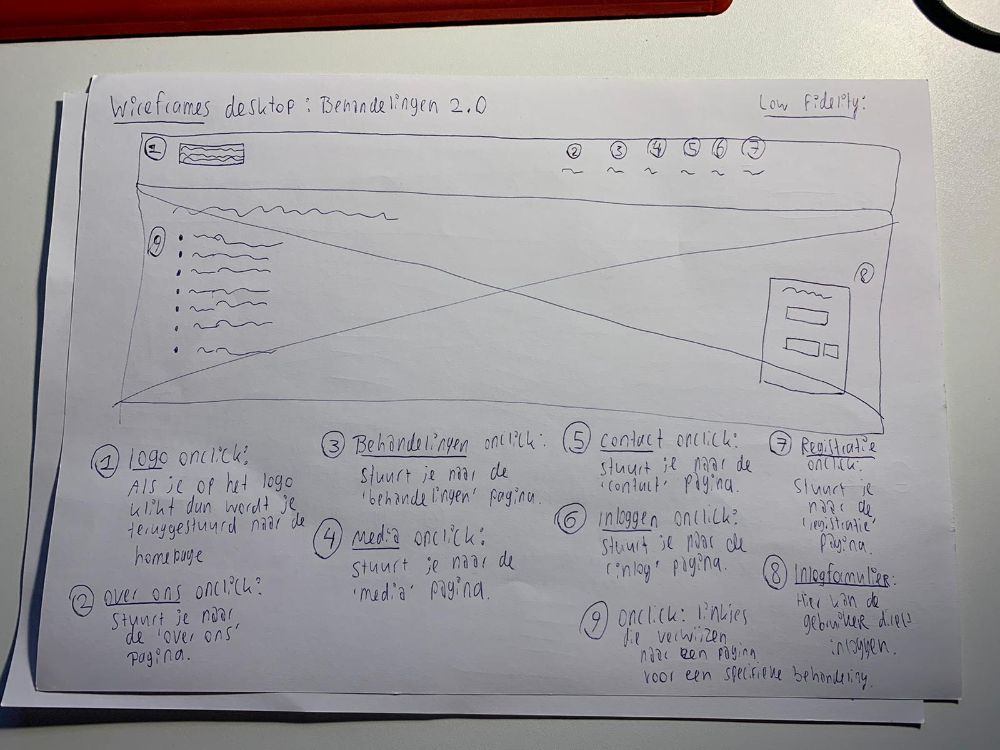 Wireframes desktop: Behandelingen 2.0
Low Fidelity:
1
2 3 4 5 6 7
9
8
1 Logo onclick:
Als je op het logo
klikt dan wordt je
teruggestuurd naar de
homepage
2 over ons onclick:
Stuurt je naar
de 'over ons'
pagina.
3 Behandelingen onclick:
Stuurt je naar de
'behandelingen' pagina.
4 Media onclick:
Stuurt je naar de
'media' pagina.
5 contact onclick:
Stuurt je naar de
'contact' pagina.
6 inloggen onclick:
Stuurt je naar de
'inlog' pagina.
7 Registratie
onclick:
Stuurt je
naar de
'registratie'
pagina.
8 Inlogfomulier:
Hier kan de
gebruiker direct
inloggen.
9 onclick: linkjes
die verwijzen
naar een pagina
voor een specifieke behandeling.